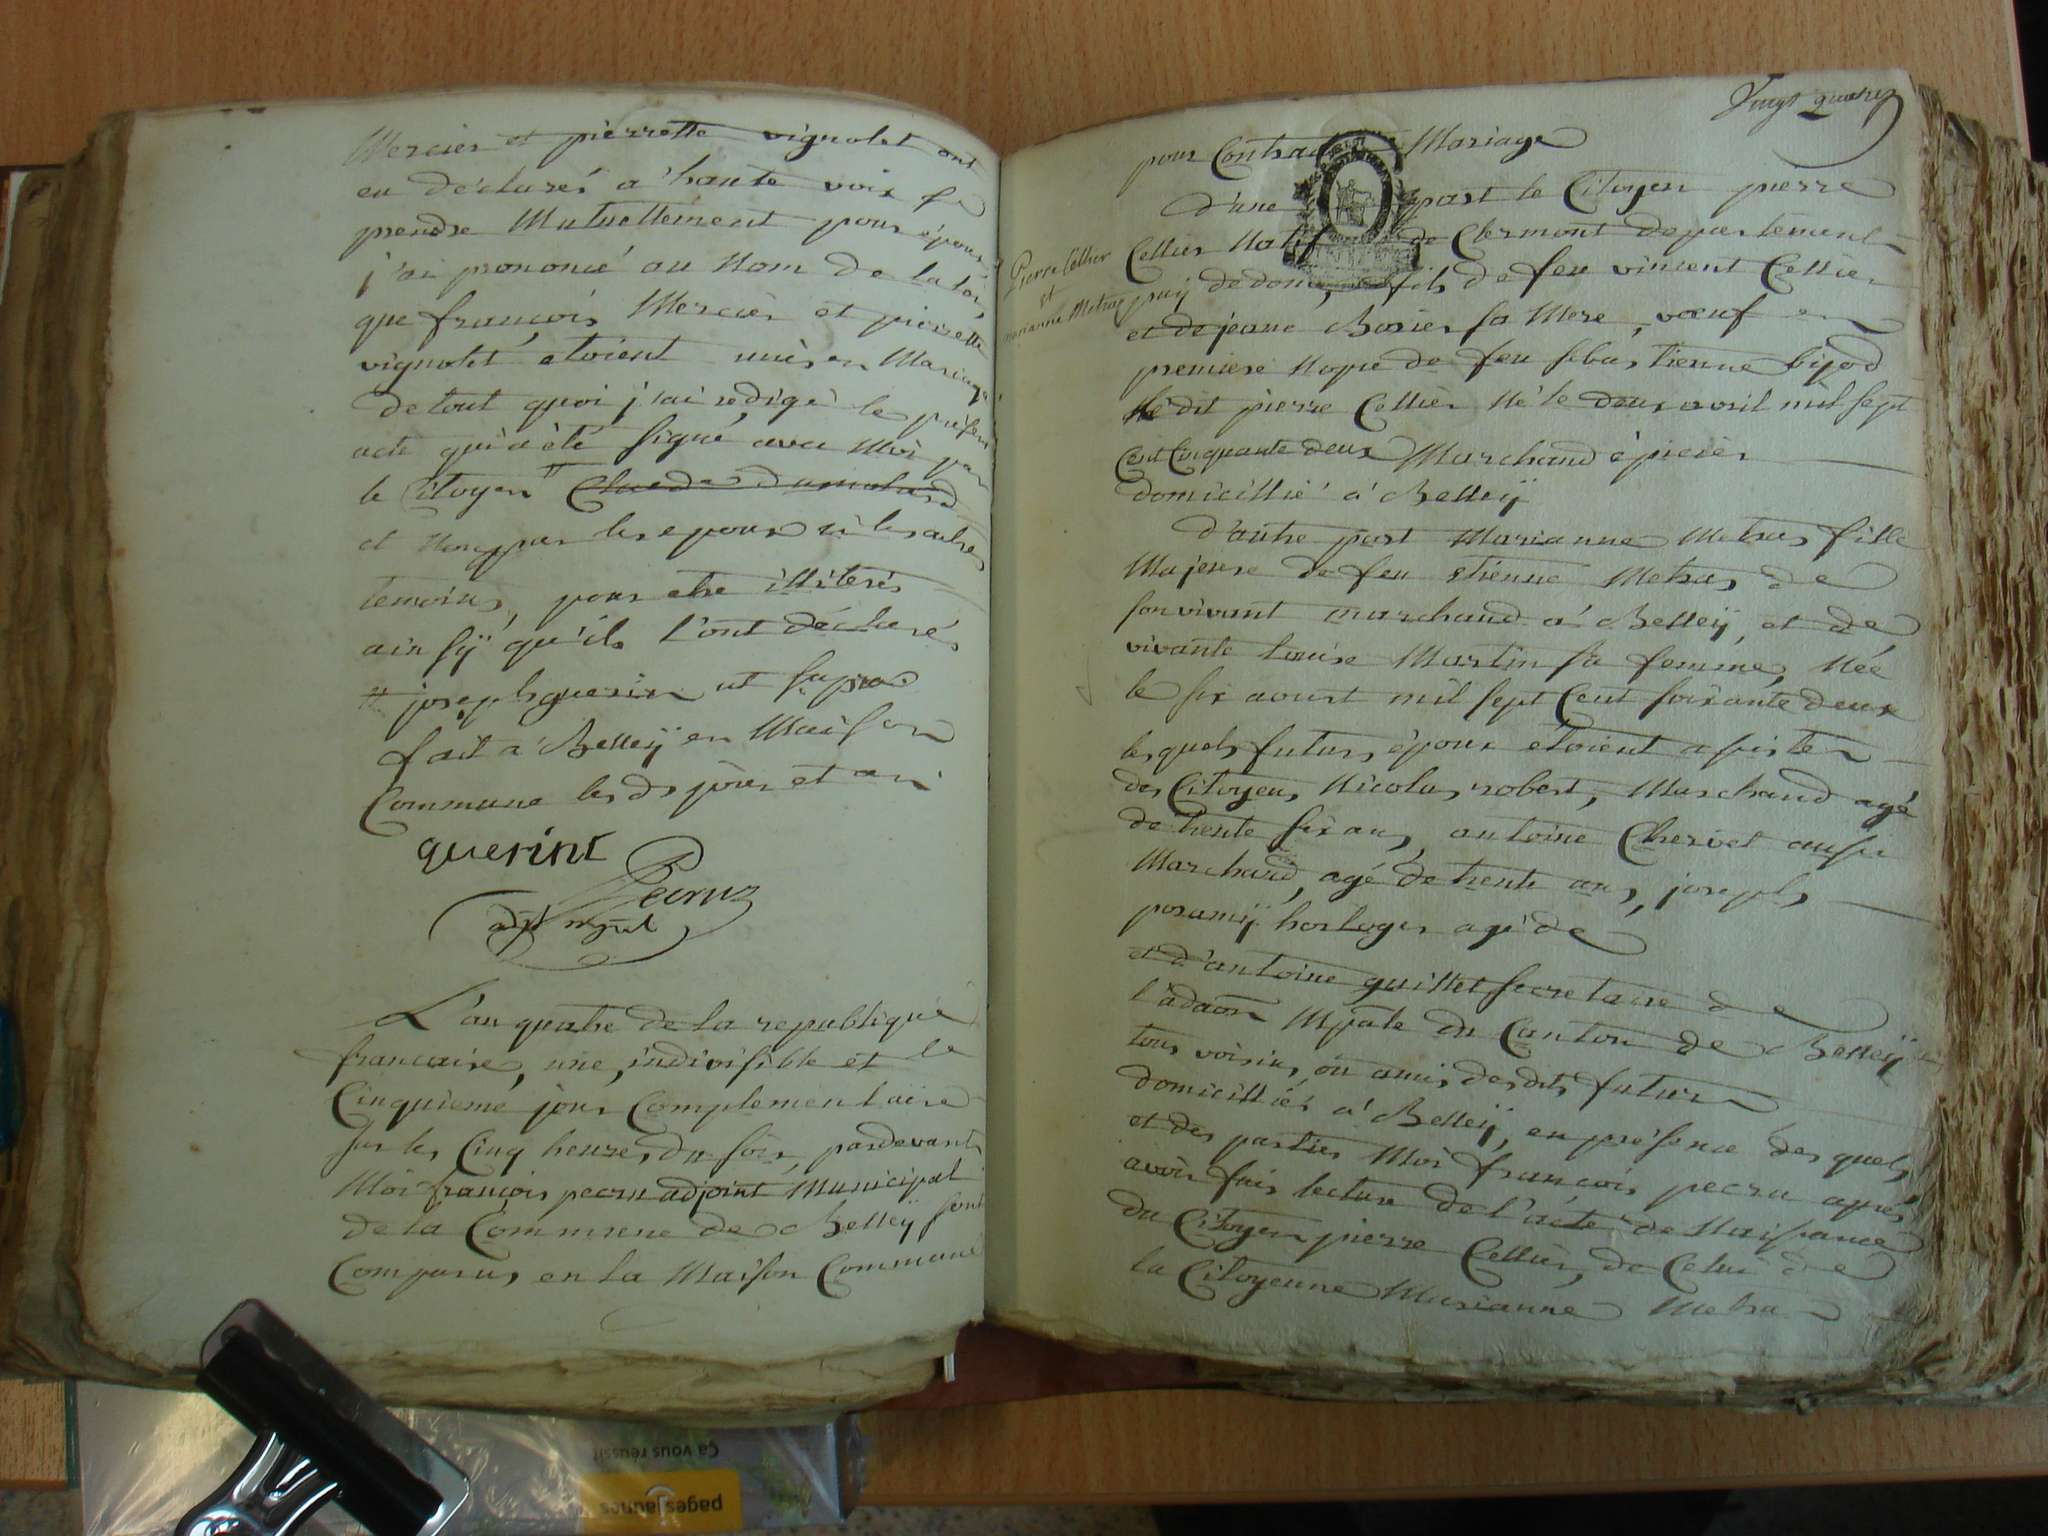 Mercier et pierrette vignolet ont
eu déclarés a' haute voix se
prendre Mutuellement pour époux
j'ai prononcé au Nom de la loi,
que francois Mercier et pierrette
vignolet etoient unis en Mariage
de tout quoi j'ai rédigé le présent
acte qui a été signé avec Moi par
le Citoyen
et Non par les epoux ni les autres
temoins, pour etre illiterés
ainsÿ qu'ils l'ont déclarés
joseph guerin ut supra
fait a' Belleÿ en Maison
Commune les ds jour et an
querint
Pecruz
adjt mpal
L'an quatre de la republique
francaise, une, indivisible et le
Cinquieme jour Complementaire
sur les Cinq heures du soir, pardevant
Moi francois pecru adjoint Municipal
de la Commune de Belleÿ sont
Comparus en la Maison Commune
Vingt quatre
pour Contracter Mariage
Pierre Cellier
et
marianne Metras
d'une part le Citoyen pierre
Cellier Natif de Clermont departement
puij de dome, fils de feu vincent Cellier
et de jeanne Borier sa Mere, vœuf en
premiere Nopce de feu sebastienne bijod
Ne dit pierre Cellier Né le deux avril mil sept
Cent Cinquante deux Marchand épicier
domicillié a' Belleÿ
d'autre part Marianne Metras fille
Majeure de feu etienne Metras de
son vivant marchand a' Belleÿ, et de
vivante Louise Martin sa femme, Née
le six aoust mil sept Cent soixante deux
lesquels futurs époux etoient assister
des Citoyens Nicolas robert, Marchand agé
de trente six ans, antoine Chervet aussi
Marchand, agé de trente ans, joseph
poramiÿ horloger agé de
et d'antoine guillet secretaire de
l'adaon Mpale du Canton de Belleÿ
tous voisins, ou amis desdits futurs
domicilliés a' Belleÿ, en présence desquels
et des parties Moi francois pecru aprés
avoir fais lecture de l'acte de Naissance
du Citoyen pierre Cellier, de Celui de
la Citoyenne Marianne Metra
Ça vous réussit
pagesjaunes